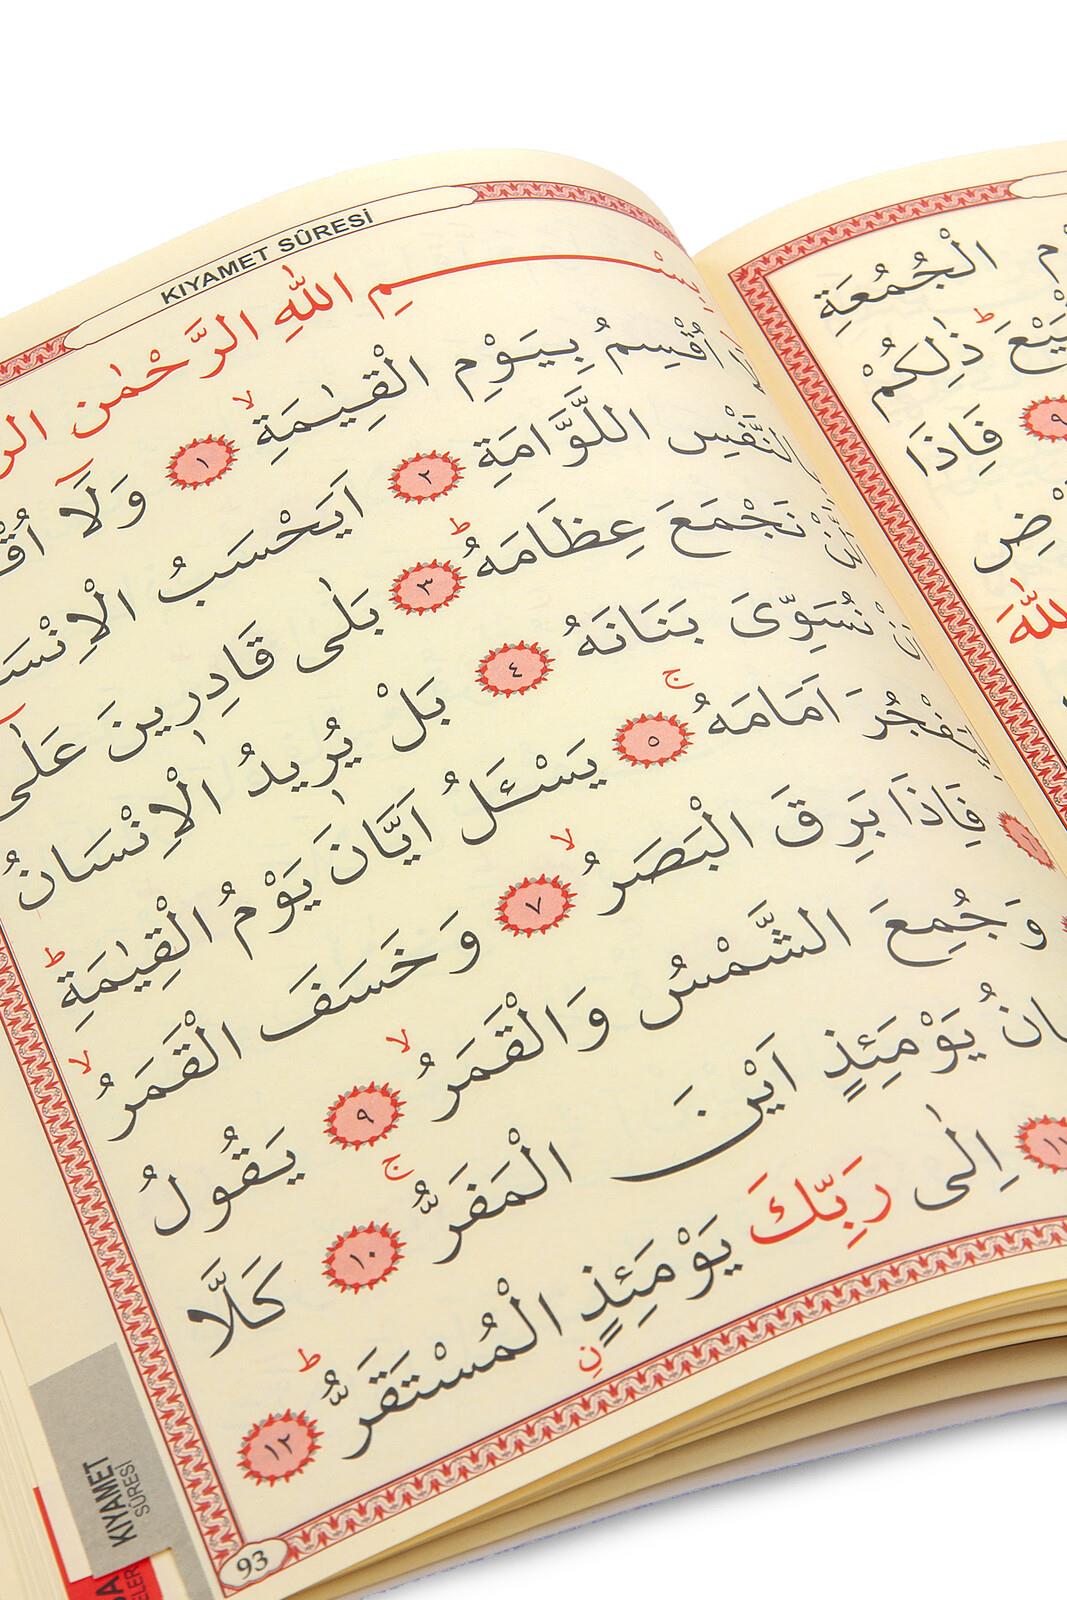 KIYAMET SÛRESİ
بِسْمِ اللّٰهِ الرَّحْمٰنِ
اُقْسِمُ بِيَوْمِ الْقِيٰمَةِۙ ﴿١﴾ وَلَٓا
بِالنَّفْسِ اللَّوَّامَةِ ﴿٢﴾ اَيَحْسَبُ
نَجْمَعَ عِظَامَهُۜ ﴿٣﴾ بَلٰى قَادِرِينَ عَلٰٓى
نُسَوِّىَ بَنَانَهُ ﴿٤﴾ بَلْ يُرِيدُ الْاِنْسَانُ
لِيَفْجُرَ اَمَامَهُۚ ﴿٥﴾ يَسْـَٔلُ اَيَّانَ يَوْمُ الْقِيٰمَةِۜ
فَاِذَا بَرِقَ الْبَصَرُۙ ﴿٧﴾ وَخَسَفَ الْقَمَرُۙ
وَجُمِعَ الشَّمْسُ وَالْقَمَرُۙ ﴿٩﴾ يَقُولُ
يَوْمَئِذٍ اَيْنَ الْمَفَرُّۚ ﴿١٠﴾ كَلَّا
﴿١١﴾ اِلٰى رَبِّكَ يَوْمَئِذٍ الْمُسْتَقَرُّۜ ﴿١٢﴾
93
KIYAMET
SÛRESİ
الْجُمُعَةِ
ذٰلِكُمْ
﴿٩﴾ فَاِذَا